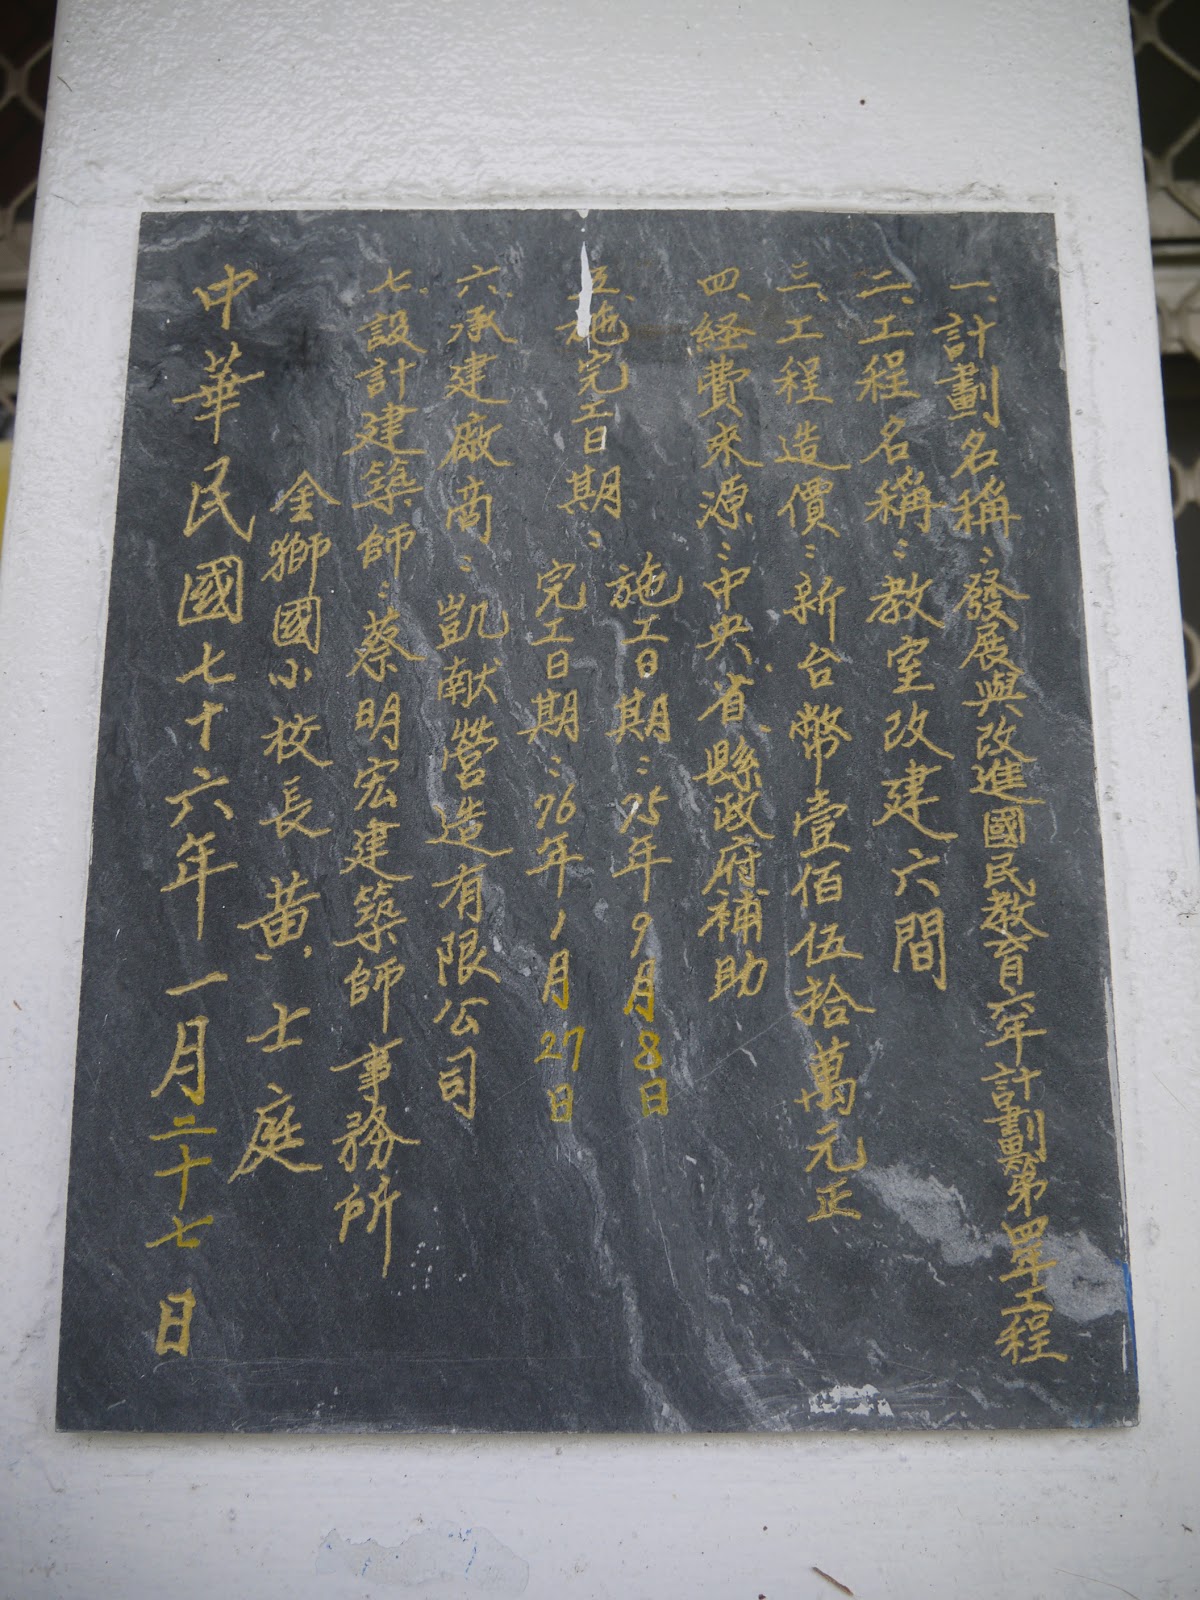 一、計劃名稱：發展與改進國民教育六年計劃第四年工程
二、工程名稱：教室改建六間
三、工程造價：新台幣壹佰伍拾萬元正
四、経費來源：中央、省、縣政府補助
五、施完工日期：
施工日期：75年9月8日
完工日期：76年1月27日
六、承建廠商：凱献營造有限公司
七、設計建築師：蔡明宏建築師事務所
金獅國小校長 黃士庭
中華民國七十六年一月二十七日